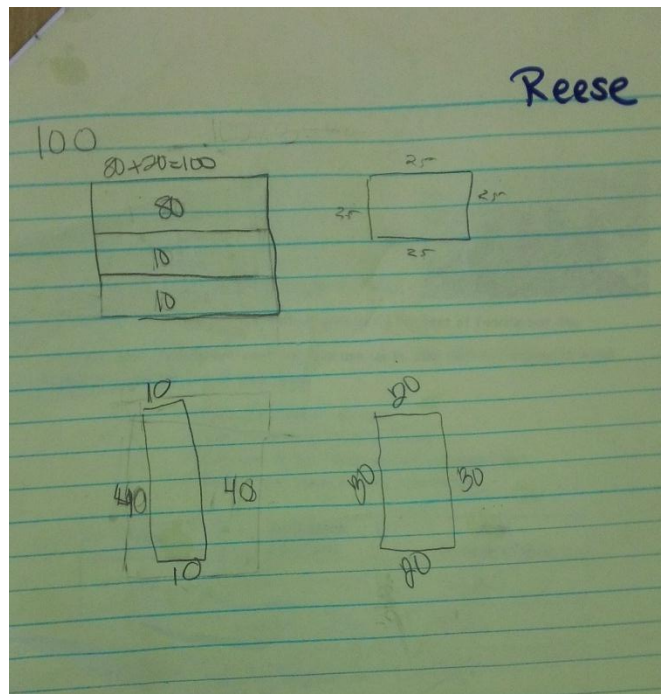 Reese
100
80+20=100
80
10
10
25
25
25
25
10
40
40
10
20
30
30
20